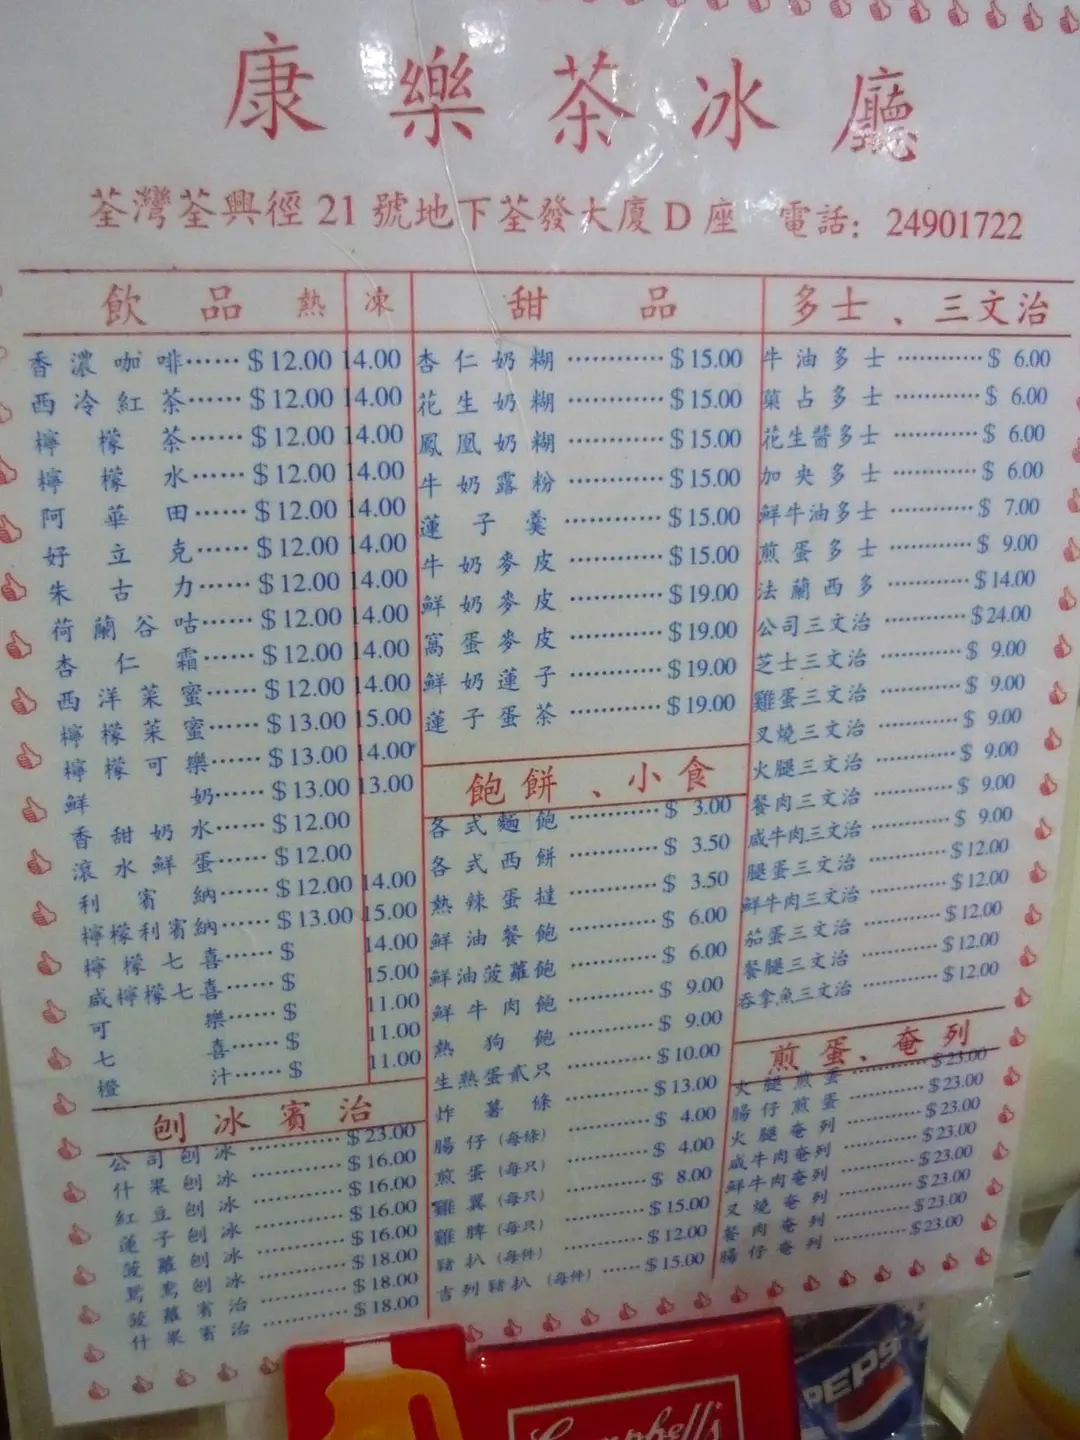 康樂茶冰廳
荃灣荃興徑21號地下荃發大廈D座 電話: 24901722
飲品 熱 凍
香濃咖啡······$12.00 14.00
西冷紅茶······$12.00 14.00
檸檬茶······$12.00 14.00
檸檬水······$12.00 14.00
阿華田······$12.00 14.00
好立克······$12.00 14.00
朱古力······$12.00 14.00
荷蘭谷咕······$12.00 14.00
杏仁霜······$12.00 14.00
西洋菜蜜······$12.00 14.00
檸檬菜蜜······$13.00 15.00
檸檬可樂······$13.00 14.00
鮮奶······$13.00 13.00
香甜奶水······$12.00
滾水鮮蛋······$12.00
利賓納······$12.00 14.00
檸檬利賓納······$13.00 15.00
檸檬七喜······$ 14.00
咸檸檬七喜······$ 15.00
可樂······$ 11.00
七喜······$ 11.00
橙汁······$ 11.00
刨冰賓治
公司刨冰············$23.00
什果刨冰············$16.00
紅豆刨冰············$16.00
蓮子刨冰············$16.00
菠蘿刨冰············$16.00
鴛鴦刨冰············$18.00
菠蘿賓治············$18.00
什果賓治············$18.00
甜品
杏仁奶糊············$15.00
花生奶糊············$15.00
鳳凰奶糊············$15.00
牛奶露粉············$15.00
蓮子羹············$15.00
牛奶麥皮············$15.00
鮮奶麥皮············$19.00
窩蛋麥皮············$19.00
鮮奶蓮子············$19.00
蓮子蛋茶············$19.00
飽餅、小食
各式麵飽············$ 3.00
各式西餅············$ 3.50
熱辣蛋撻············$ 3.50
鮮油餐飽············$ 6.00
鮮油菠蘿飽············$ 6.00
鮮牛肉飽············$ 9.00
熱狗飽············$ 9.00
生熟蛋貳只············$10.00
炸薯條············$13.00
腸仔(每條)············$ 4.00
煎蛋(每只)············$ 4.00
雞翼(每只)············$ 8.00
雞脾(每只)············$15.00
豬扒(每件)············$12.00
吉列豬扒(每件)······$15.00
多士、三文治
牛油多士············$ 6.00
菓占多士············$ 6.00
花生醬多士············$ 6.00
加央多士············$ 6.00
鮮牛油多士············$ 7.00
煎蛋多士············$ 9.00
法蘭西多············$14.00
公司三文治············$24.00
芝士三文治············$ 9.00
雞蛋三文治············$ 9.00
叉燒三文治············$ 9.00
火腿三文治············$ 9.00
餐肉三文治············$ 9.00
咸牛肉三文治············$ 9.00
腿蛋三文治············$12.00
鮮牛肉三文治············$12.00
茄蛋三文治············$12.00
餐腿三文治············$12.00
吞拿魚三文治············$12.00
煎蛋、奄列
火腿煎蛋············$23.00
腸仔煎蛋············$23.00
火腿奄列············$23.00
咸牛肉奄列············$23.00
鮮牛肉奄列············$23.00
叉燒奄列············$23.00
餐肉奄列············$23.00
腸仔奄列············$23.00
Campbell's
PEPSI